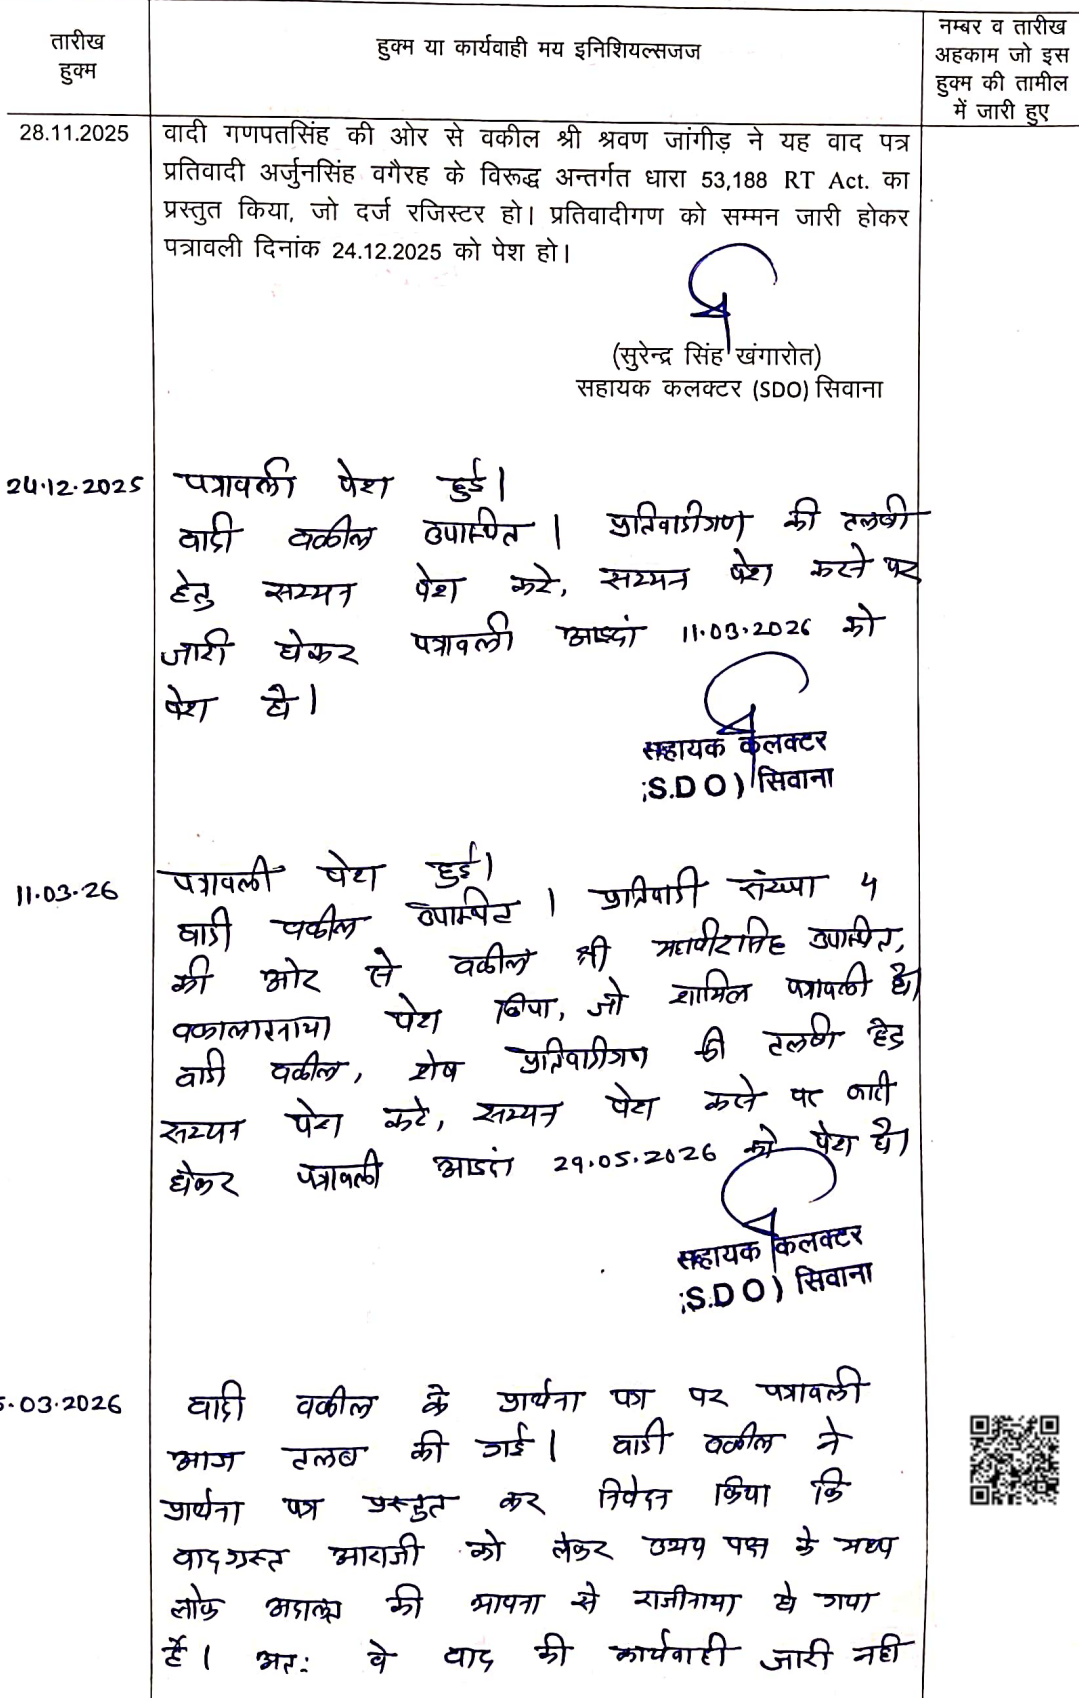 तारीख
हुक्म
हुक्म या कार्यवाही मय इनिशियल्सजज
नम्बर व तारीख
अहकाम जो इस
हुक्म की तामील
में जारी हुए
28.11.2025
वादी गणपतसिंह की ओर से वकील श्री श्रवण जांगीड़ ने यह वाद पत्र
प्रतिवादी अर्जुनसिंह वगैरह के विरूद्ध अन्तर्गत धारा 53,188 RT Act. का
प्रस्तुत किया, जो दर्ज रजिस्टर हो। प्रतिवादीगण को सम्मन जारी होकर
पत्रावली दिनांक 24.12.2025 को पेश हो।
(सुरेन्द्र सिंह खंगारोत)
सहायक कलक्टर (SDO) सिवाना
24.12.2025 पत्रावली पेश हुई।
वादी वकील उपस्थित। प्रतिवादीगण की तलबी
हेतु सम्मन पेश करे, सम्मन पेश करने पर
जारी होकर पत्रावली आइंदा 11.03.2026 को
पेश हो।
सहायक कलक्टर
(S.D O) सिवाना
11.03.26 पत्रावली पेश हुई।
वादी वकील उपस्थित। प्रतिवादी संख्या 4
की ओर से वकील श्री महावीरसिंह उपस्थित,
वकालातनामा पेश किया, जो शामिल पत्रावली हो।
वादी वकील, शेष प्रतिवादीगण की तलबी हेतु
सम्मन पेश करे, सम्मन पेश करने पर जारी
होकर पत्रावली आइंदा 29.05.2026 को पेश हो।
सहायक कलक्टर
(S.D O) सिवाना
.03.2026 वादी वकील के प्रार्थना पत्र पर पत्रावली
आज तलब की गई। वादी वकील ने
प्रार्थना पत्र प्रस्तुत कर निवेदन किया कि
वादग्रस्त आराजी को लेकर उभय पक्ष के मध्य
लोक अदालत की भावना से राजीनामा हो गया
है। अतः वे वाद की कार्यवाही जारी नही